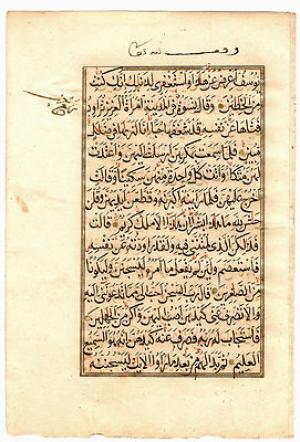 يوسف اعرض عن هذا واستغفري لذنبك انك كنت
من الخاطئين وقال نسوة في المدينة امرأة العزيز تراود
فتاها عن نفسه قد شغفها حبا انا لنراها في ضلال
مبين فلما سمعت بمكرهن ارسلت اليهن واعتدت
لهن متكأ واتت كل واحدة منهن سكينا وقالت
اخرج عليهن فلما رأينه اكبرنه وقطعن ايديهن وقلن
حاش لله ما هذا بشرا ان هذا الا ملك كريم قالت
فذلكن الذي لمتنني فيه ولقد راودته عن نفسه
فاستعصم ولئن لم يفعل ما امره ليسجنن وليكونا
من الصاغرين قال رب السجن احب الي مما يدعونني اليه
والا تصرف عني كيدهن اصب اليهن واكن من الجاهلين
فاستجاب له ربه فصرف عنه كيدهن انه هو السميع
العليم ثم بدا لهم من بعد ما رأوا الايات ليسجننه